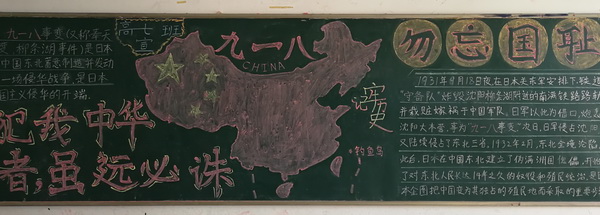 九一八事变(又称奉天
变、柳条湖事件)是日本
中国东北蓄意制造并发动
一场侵华战争,是日本
国主义侵华的开端。
高七
班
犯我中华
者,虽远必诛
九一八
CHINA
牢记历史
钓鱼岛
勿忘国耻
1931年9月18日夜,在日本关东军安排下,铁道
"守备队"炸毁沈阳柳条湖附近的南满铁路路轨
并栽赃嫁祸于中国军队。日军以此为借口,炮轰
沈阳 大营,"九一八事变"次日,日军侵占沈
又陆续侵占了东北三省。1932年2月,东北全境沦陷
此后,日本在中国东北建立了伪满洲国傀儡,开始
了对东北人民长达14年之久的奴役和殖民统治,是
本企图把中国变为其独占的殖民地而采取的重要